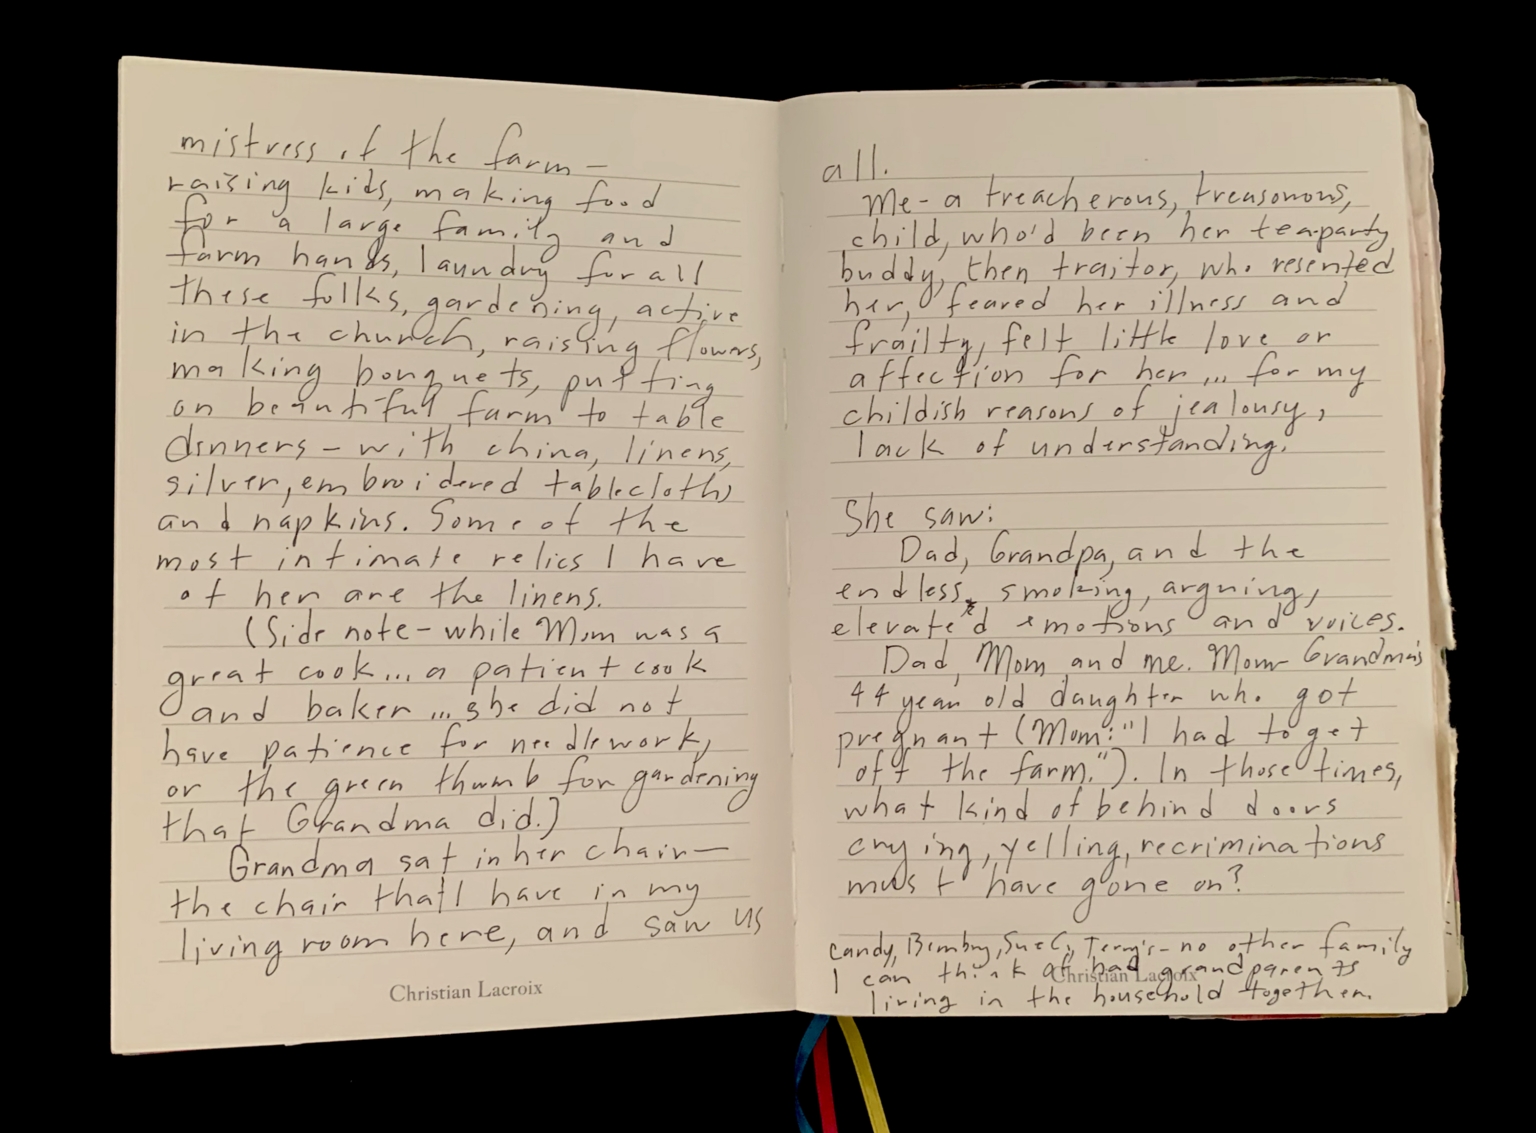 mistress of the farm—
raising kids, making food
for a large family and
farm hands, laundry for all
these folks, gardening, active
in the church, raising flowers,
making bouquets, putting
on beautiful farm to table
dinners – with china, linens,
silver, embroidered tablecloths
and napkins. Some of the
most intimate relics I have
of her are the linens.
(Side note – while Mom was a
great cook... a patient cook
and baker ... she did not
have patience for needlework,
or the green thumb for gardening
that Grandma did.)
Grandma sat in her chair—
the chair that I have in my
living room here, and saw us
Christian Lacroix
all.
Me – a treacherous, treasonous,
child, who'd been her tea-party
buddy, then traitor, who resented
her, feared her illness and
frailty, felt little love or
affection for her ... for my
childish reasons of jealousy,
lack of understanding.
She saw:
Dad, Grandpa, and the
endless smoking, arguing,
elevated emotions and voices.
Dad, Mom and me. Mom – Grandma's
44 year old daughter who got
pregnant (Mom: "I had to get
off the farm."). In those times,
what kind of behind doors
crying, yelling, recriminations
must have gone on?
Candy, Sue C, Terry's – no other family
I can think of had grandparents
Christian Lacroix
living in the household together.